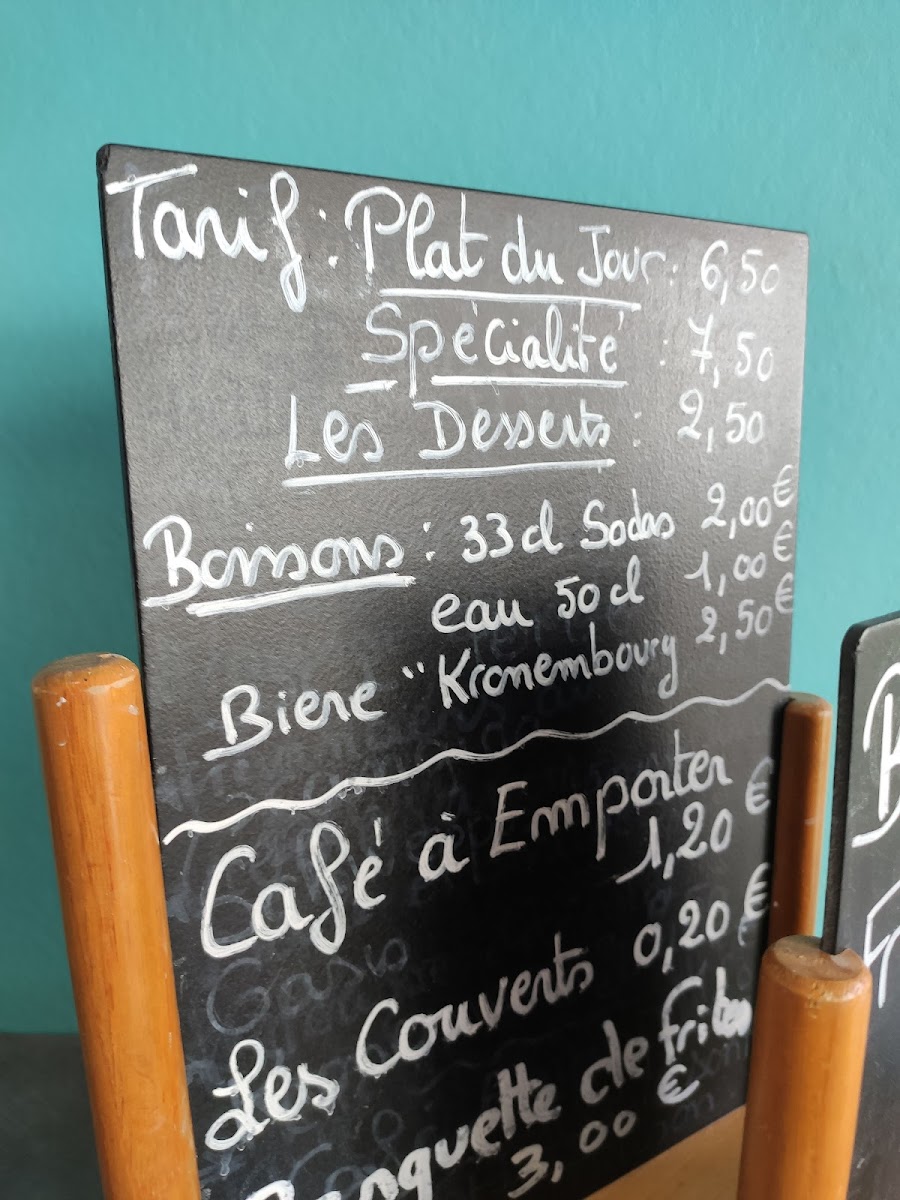 Tarif : Plat du Jour : 6,50
Spécialité : 7,50
Les Desserts : 2,50
Boissons : 33cl Sodas 2,00€
eau 50cl 1,00€
Biere "Kronembourg 2,50€
Café à Emporter
1,20€
Les Couverts 0,20€
Banquette de frites
3,00€